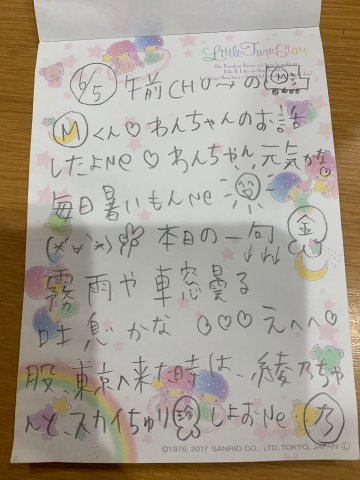 Little Twin Stars
6/5 午前CHU〜の M号
Mくん♡わんちゃんのお話
したよNe♡わんちゃん元気かな
毎日暑いもんNe
(*´∨`*) 本日の一句 金
霧雨や車窓曇る
吐息かな ○○○えへへ♡
股、東京へ来た時は、綾乃ちゃ
んと、スカイちゅり珍しよおNe 乃
©1976, 2017 SANRIO CO., LTD. TOKYO, JAPAN Ⓛ